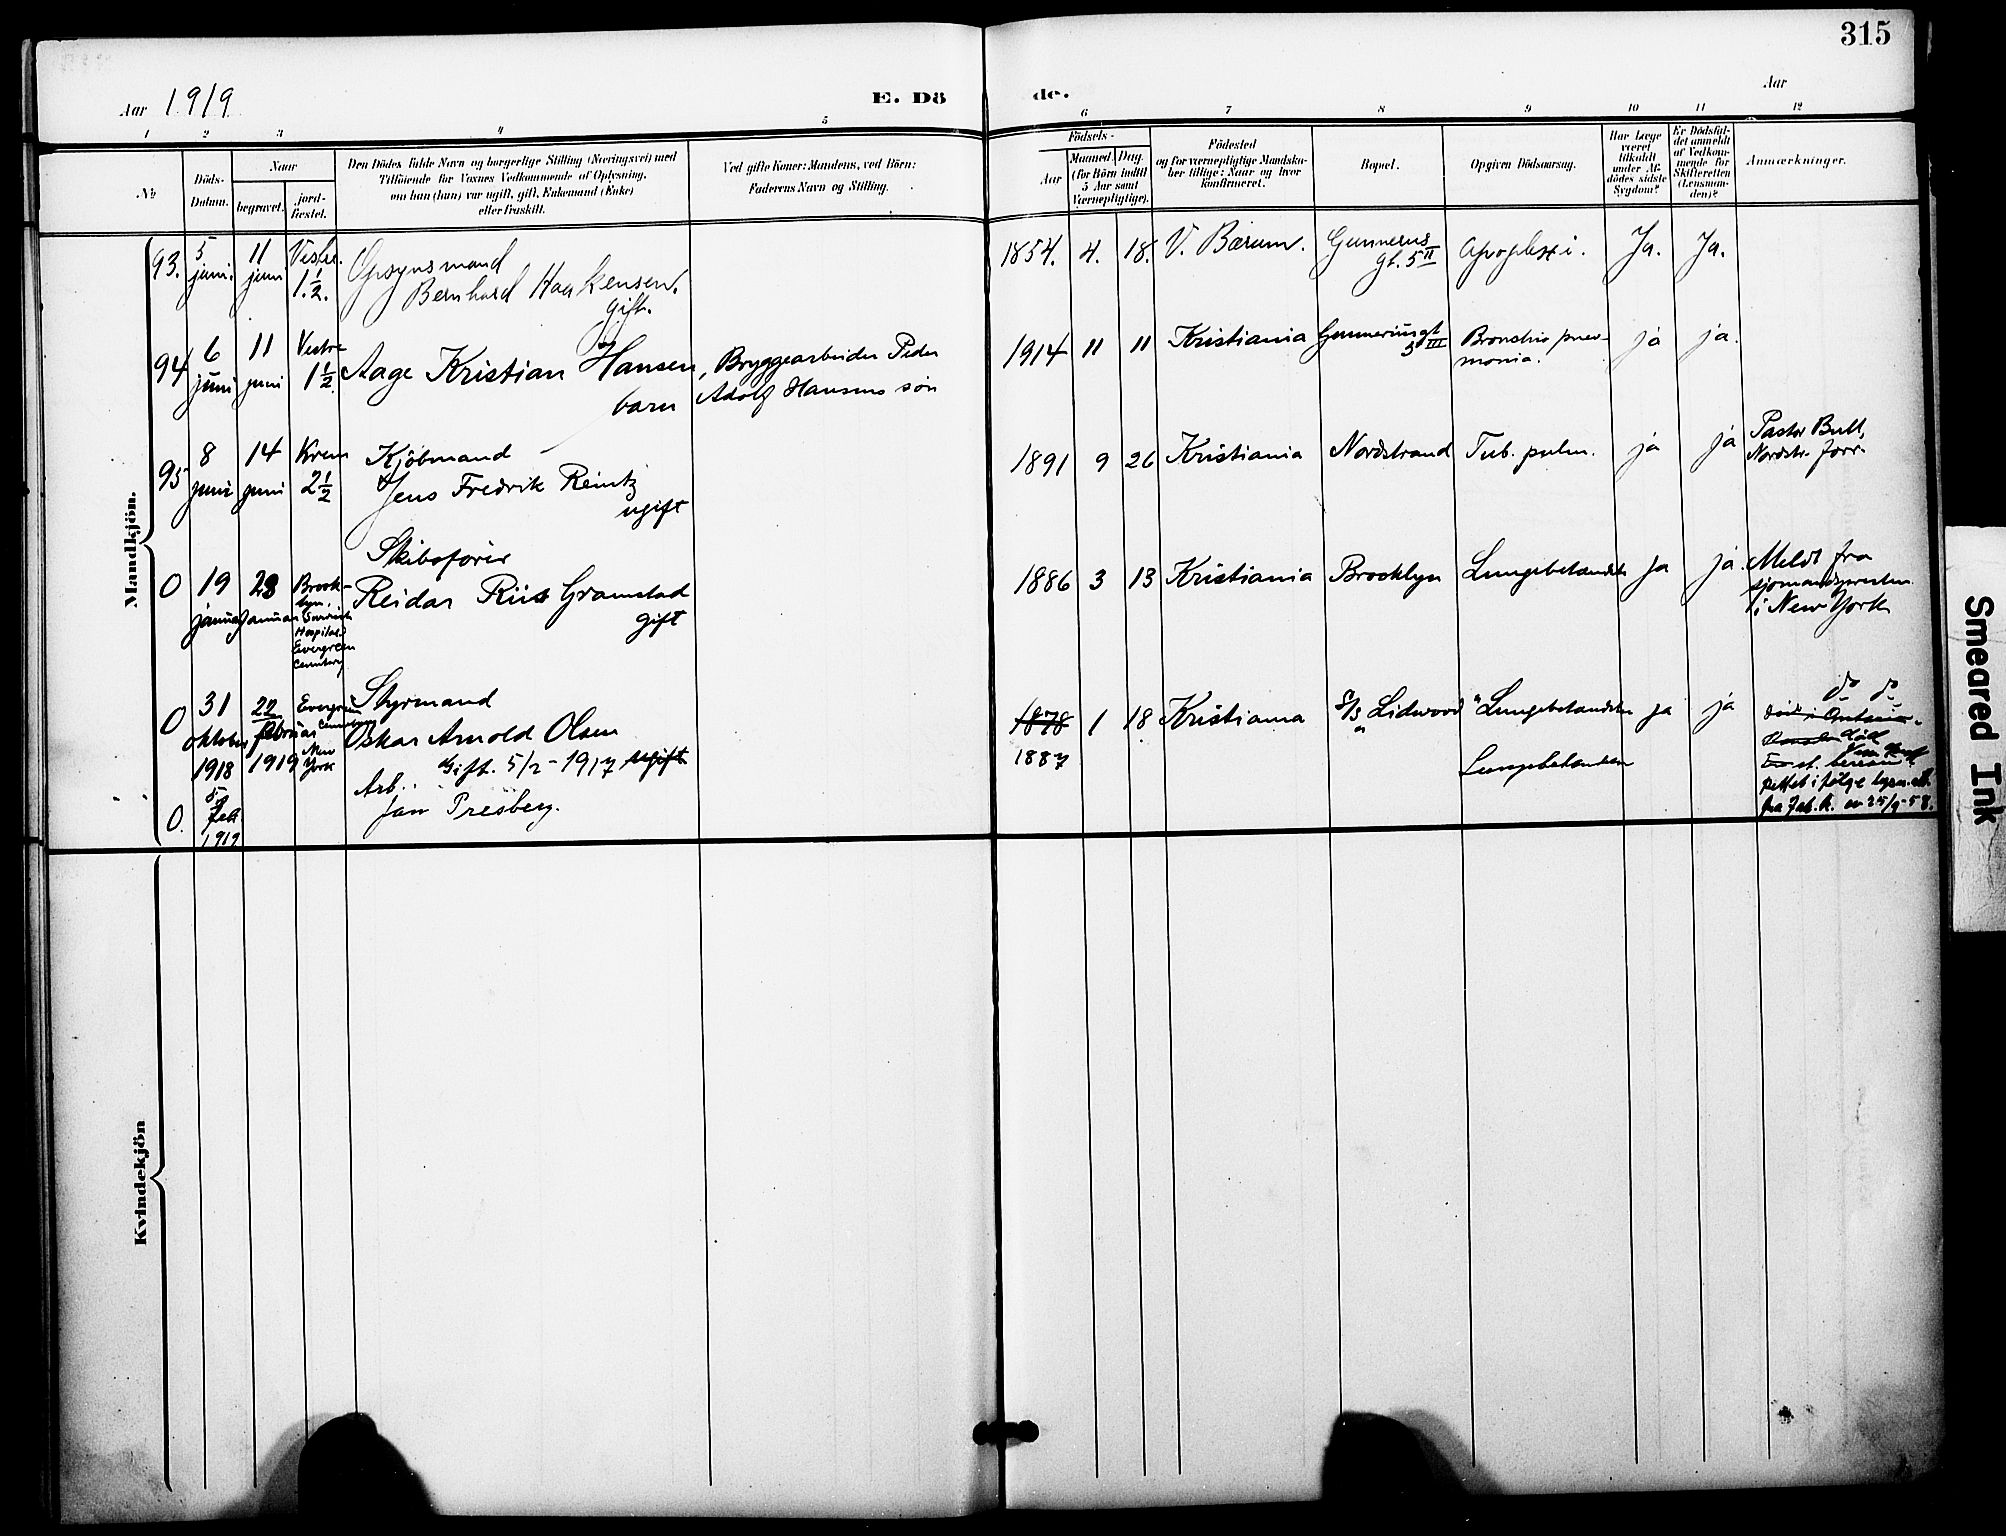 315
Aar 1919
E. Dö
de.
Aar
1 2 3 4 5 6 7 8 9 10 11 12
No
Döds-
Datum.
Naar
begravet.
jord-
fæstet.
Den Dödes fulde Navn og borgerlige Stilling (Næringsvei) med
Tilföiende for Voxnes Vedkommende af Oplysning,
om han (hun) var ugift, gift, Enkemand (Enke)
eller fraskilt.
Ved gifte Koner: Mandens, ved Börn:
Faderens Navn og Stilling.
Födsels-
Aar
Maaned. Dag.
(for Börn indtil
5 Aar samt
Værnepligtige).
Födested
og for værnepligtige Mandska-
ber tillige: Naar og hvor
konfirmeret.
Bopæl.
Opgiven Dödsaarsag.
Har Læge
været
tilkaldt
under Af-
dödes sidste
Sygdom?
Er Dödsfal-
det anmeldt
af Vedkom-
mende for
Skifteretten
(Lensman-
den)?
Anmærkninger.
Mandkjön.
93. 5 juni. 11 juni Vestre. 1.½.
Opsynsmand
Bernhard Haakensen.
gift.
1854. 4. 18. V. Bærum. Gunnerus gt. 5 II apoplexi. Ja. Ja.
94 6 juni 11 juni Vestre 1½
Aage Kristian Hansen,
barn
Bryggearbeider Peder
Adolf Hansens søn
1914 11 11 Kristiania Gunnerusgt 5 III Broncho pneu-
monia. ja ja.
95 8 juni 14 juni Krem 2½
Kjöbmand
Jens Fredrik Reintz
ugift
1891 9 26 Kristiania Nordstrand Tub. pulm. ja ja
Pastor Bull,
Nordstr. forr.
0 19 januar 23 januar Brook-
lyn.
Hospital
Evergreen
Cemetery
Skibsfører
Reidar Riis Gramstad
gift
1886 3 13 Kristiania Brooklyn Lungebetændelse ja ja.
Meldt fra
sjømandspresten
i New York
0 31 oktober 1918 22 februar 1919 Evergreen
Cemetery
New
York
Styrmand
Oskar Arnold Olsen
Gift. 5/2-1917 ugift
1878 1 18 Kristiania S/S "Lidwood" Lungebetændelse ja ja
1887
do do
død
Rettet i følge
25/9-58.
0. 5 feb 1919
Arb.
Jan Presberg.
Lungebetændelse
Kvindekjön
Smeared Ink